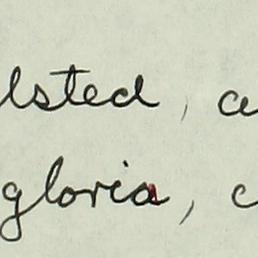 lsted, a
gloria, c